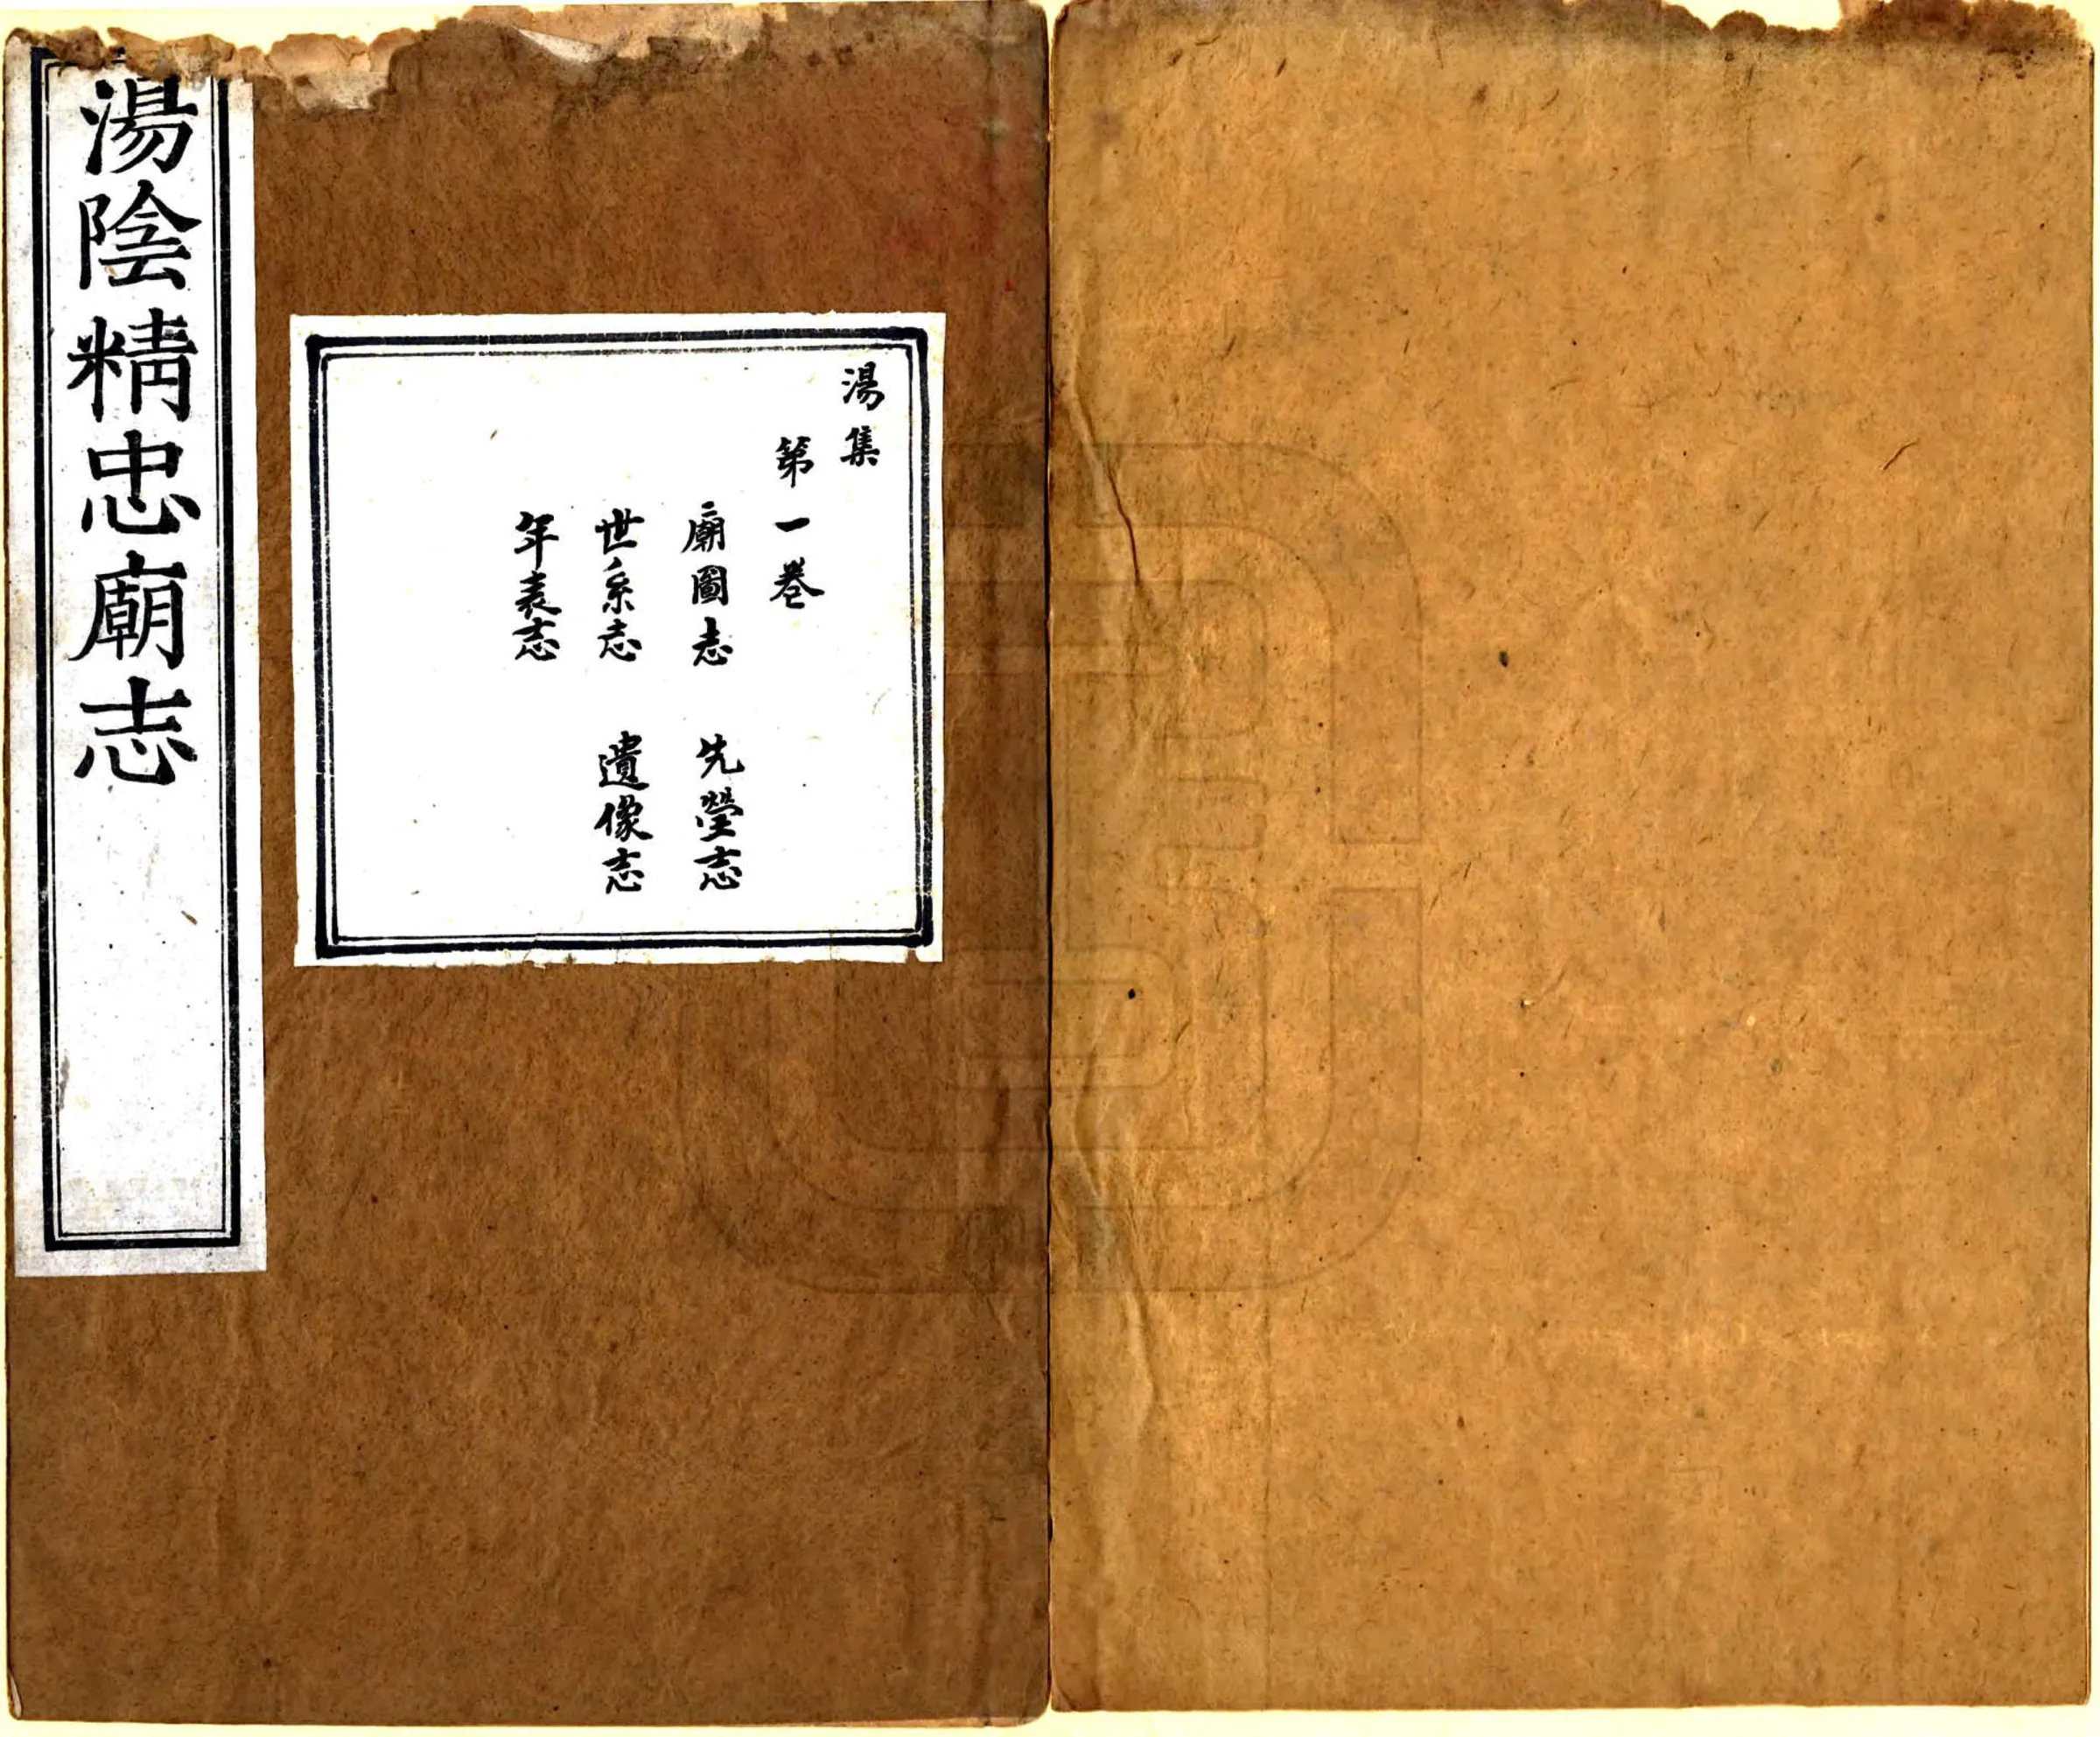 湯陰精忠廟志
湯集
第一卷
廟圖志　先塋志
世系志　遺像志
年表志